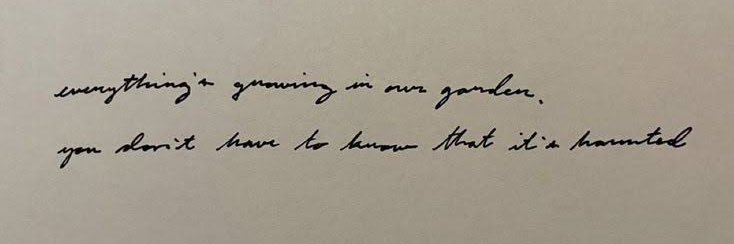 everything's growing in our garden.
you don't have to know that it's haunted